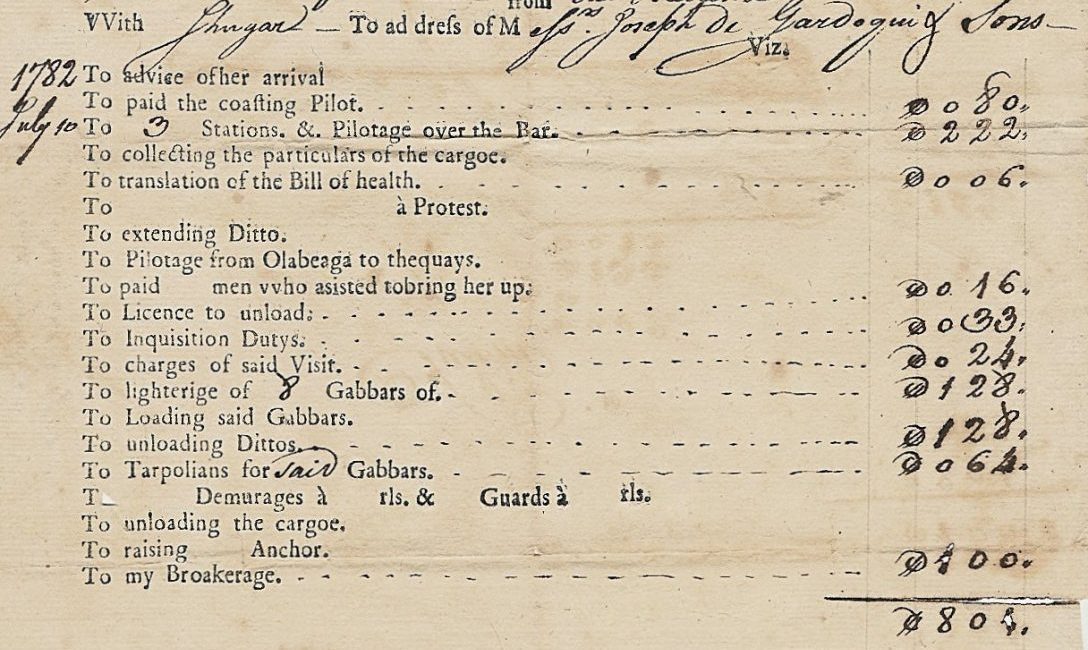 from
VVith Shugar — To ad dreſs of M eſsrs. Joseph de Gardoqui & Sons
Viz.
1782 To advice ofher arrival
To paid the coaſting Pilot. 080.
July 10 To 3 Stations. &. Pilotage over the Bar. 222.
To collecting the particulars of the cargoe.
To translation of the Bill of health. 006.
To à Protest.
To extending Ditto.
To Pilotage from Olabeaga to thequays.
To paid men vvho asisted tobring her up. 016.
To Licence to unload. 033.
To Inquisition Dutys.
To charges of said Visit. 024.
To lighterige of 8 Gabbars of. 128.
To Loading said Gabbars.
To unloading Dittos. 128.
To Tarpolians for said Gabbars. 064.
T Demurages à rls. & Guards à rls.
To unloading the cargoe.
To raising Anchor.
To my Broakerage. 100.
801.